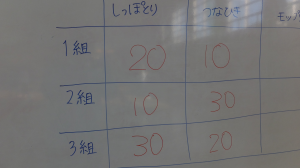 しっぽとり つなひき
1組 20 10
2組 10 30
3組 30 20